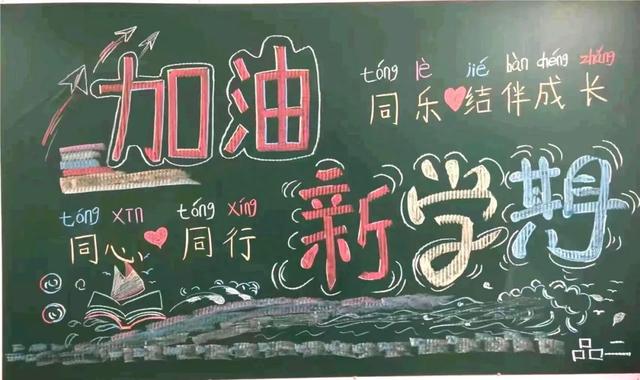 加油
tóng lè jié bàn chéng zhǎng
同乐结伴成长
新学期
tóng xīn tóng xíng
同心同行
品二